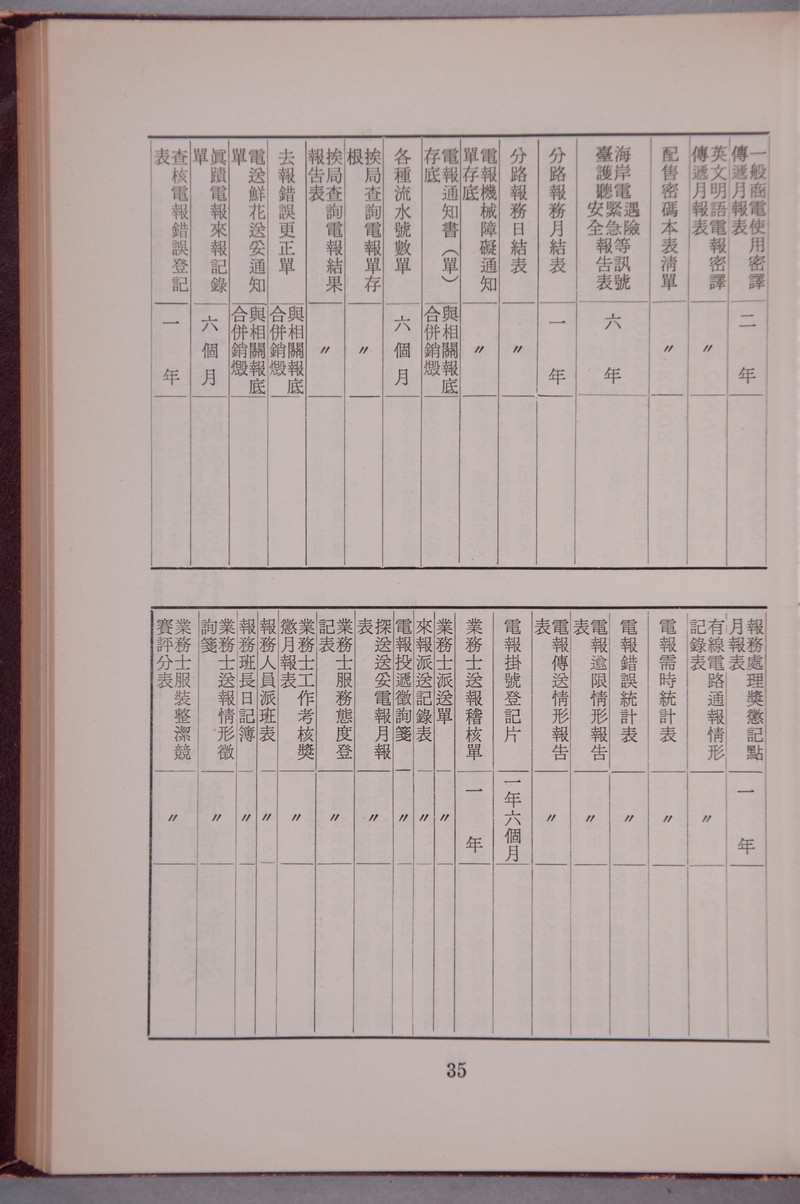 一般商電使用密譯
傳遞月報表
二年
英文明語電報密譯
傳遞月報表
〃
配售密碼本表清單
〃
海岸電臺護聽遇險緊急安全等訊號報告表
六年
分路報務月結表
一年
分路報務日結表
〃
電報機械障礙通知
單存底
〃
電報通知書（單）
存底
與相關報底
合併銷燬
各種流水號數單
六個月
挨局查詢電報單存
根
〃
挨局查詢電報結果
報告表
〃
去報錯誤更正單
與相關報底
合併銷燬
電送鮮花送妥通知
單
與相關報底
合併銷燬
眞蹟電報來報記錄
單
六個月
查核電報錯誤登記
表
一年
報務處理獎懲記點
月報表
一年
有線電路通報情形
記錄表
〃
電報需時統計表
〃
電報錯誤統計表
〃
電報逾限情形報告
表
〃
電報傳送情形報告
表
〃
電報掛號登記片
一年六個月
業務士送報稽核單
一年
業務士派送單
〃
來報派送記錄表
〃
電報投遞徵詢箋
〃
探送送妥電報月報
表
〃
業務士服務態度登
記表
〃
業務士工作考核獎
懲月報表
〃
報務人員派班表
〃
報務班長日記簿
〃
業務士送報情形徵
詢箋
〃
業務士服裝整潔競
賽評分表
〃
35